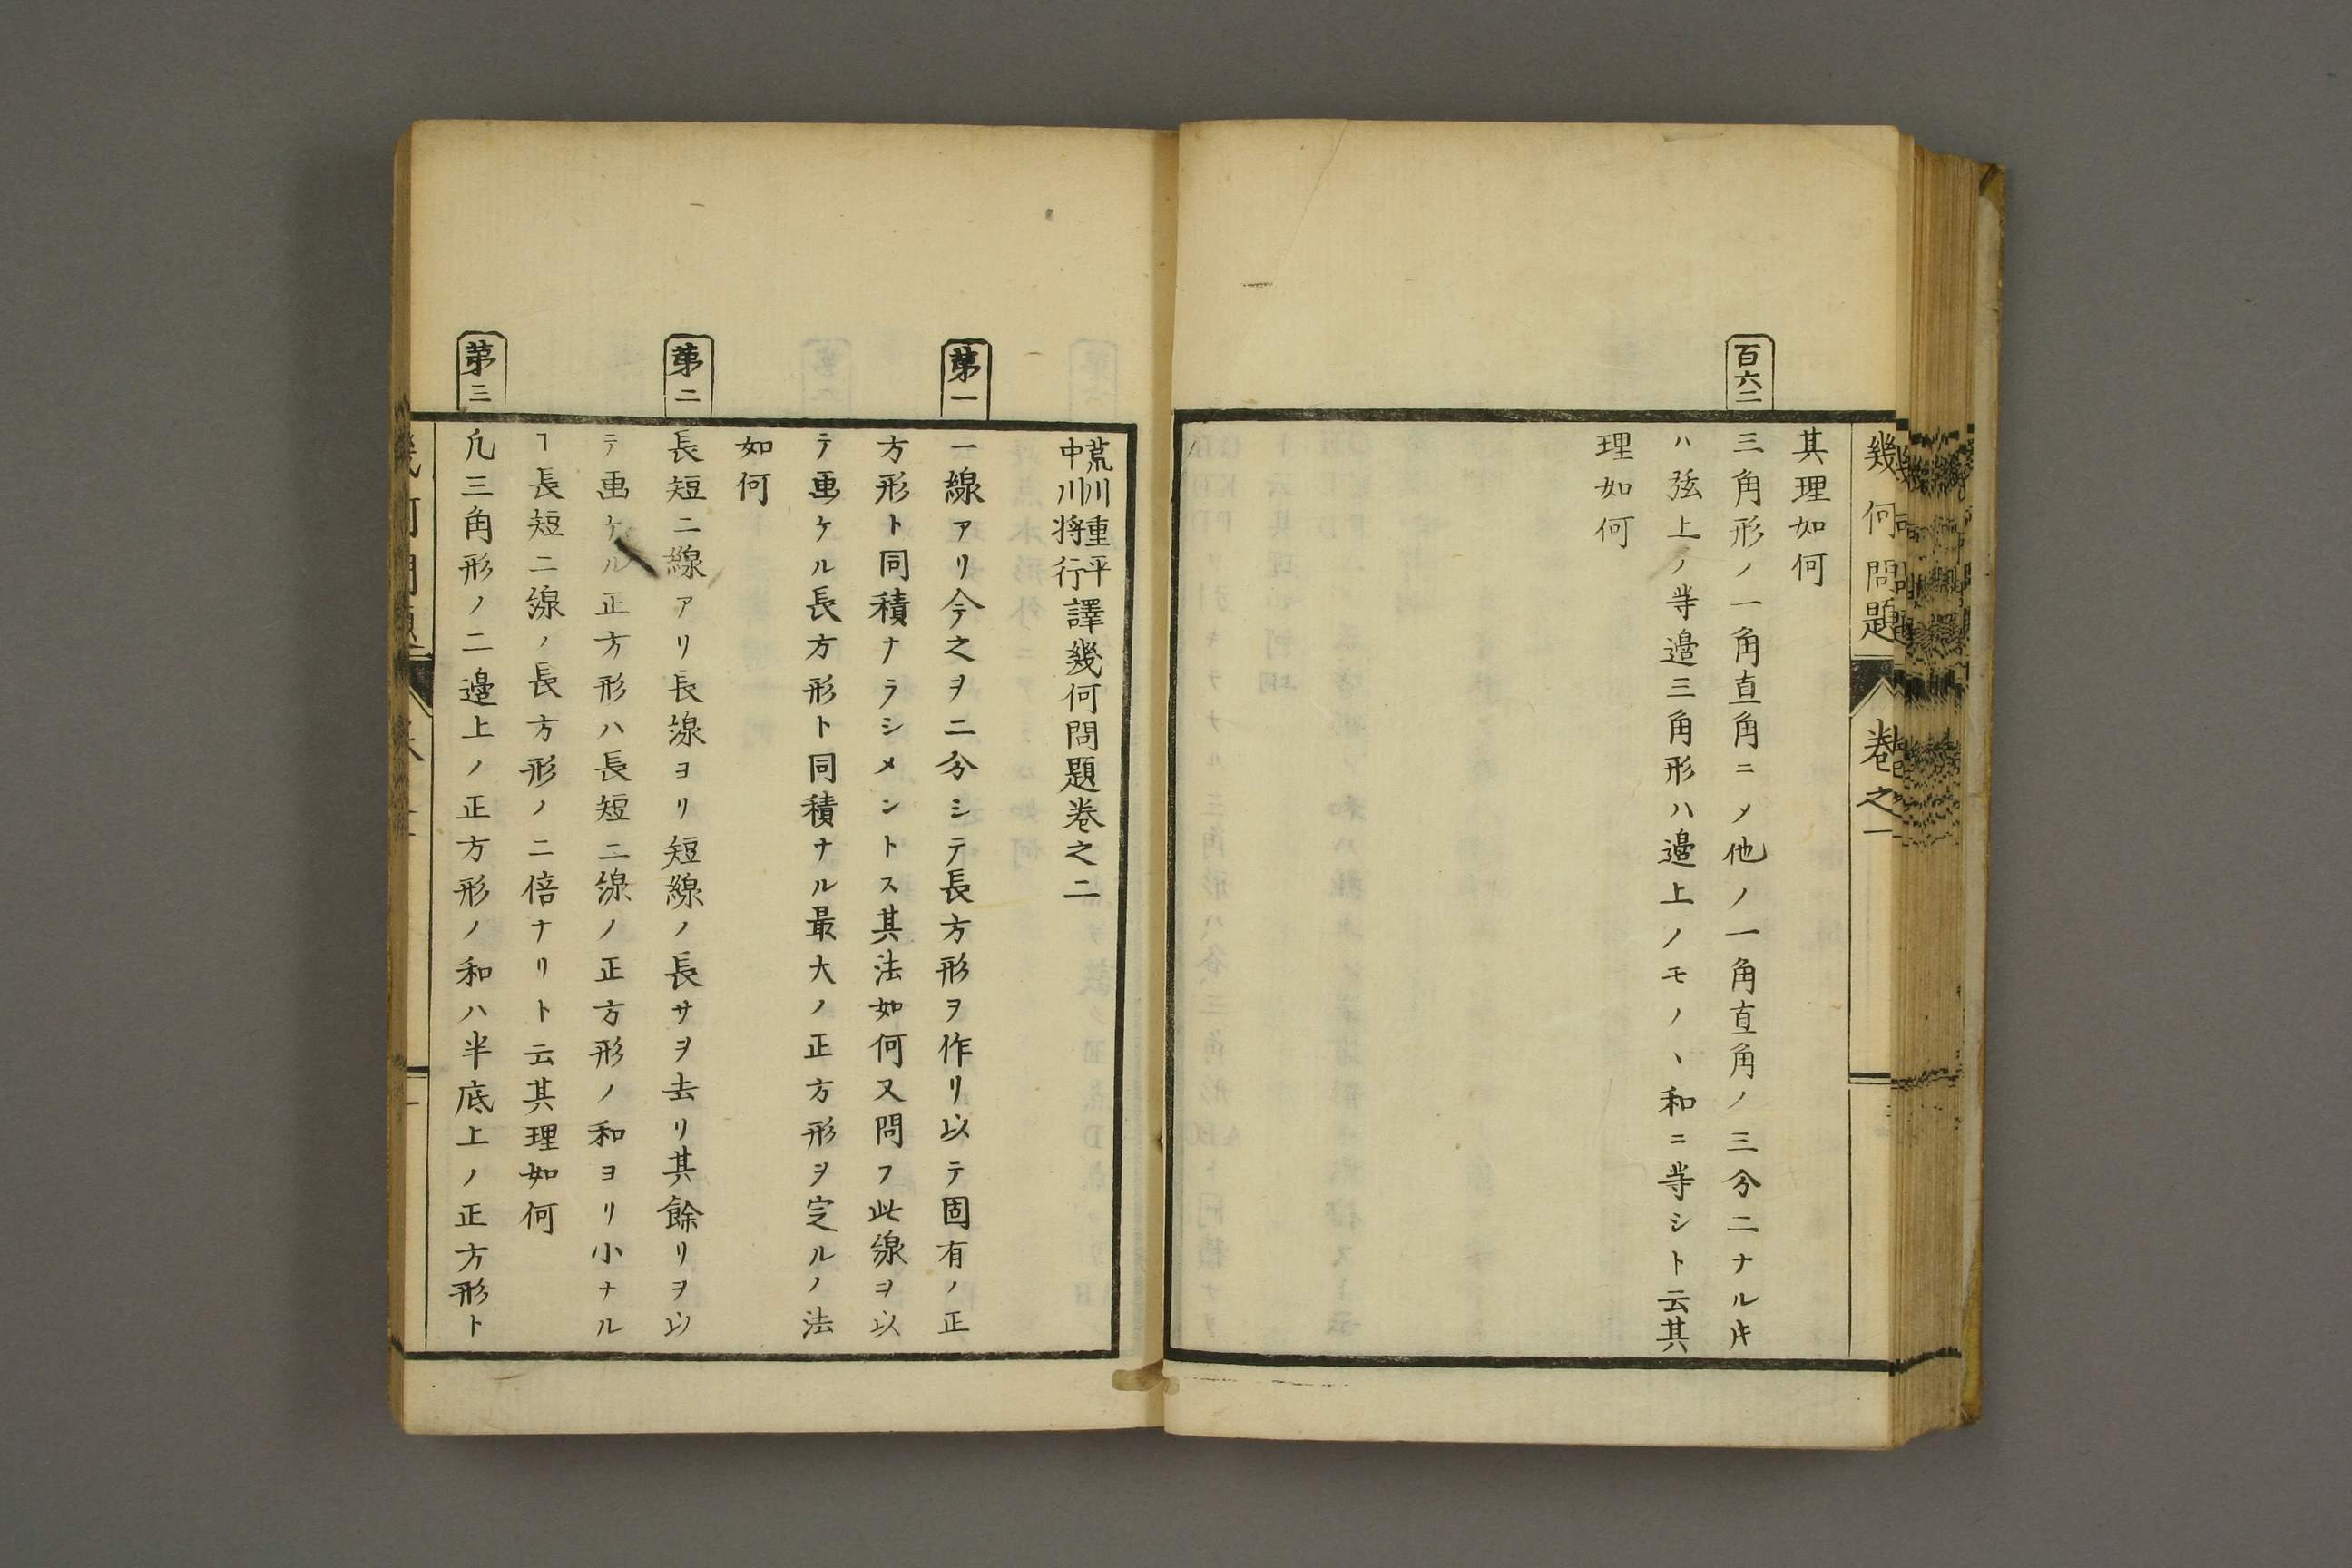 幾何問題 卷之一
其理如何
百六二
三角形ノ一角直角ニ〆他ノ一角直角ノ三分二ナル𪜈
ハ弦上ノ等邉三角形ハ邉上ノモノヽ和ニ等シト云其
理如何
荒川重平
中川将行
譯幾何問題卷之二
第一
一線アリ今之ヲ二分シテ長方形ヲ作リ以テ固有ノ正
方形ト同積ナラシメントス其法如何又問フ此線ヲ以
テ畫ケル長方形ト同積ナル最大ノ正方形ヲ定ルノ法
如何
第二
長短二線アリ長線ヨリ短線ノ長サヲ去リ其餘リヲ以
テ畫ケル正方形ハ長短二線ノ正方形ノ和ヨリ小ナル
ヿ長短二線ノ長方形ノ二倍ナリト云其理如何
第三
凡三角形ノ二邉上ノ正方形ノ和ハ半底上ノ正方形ト